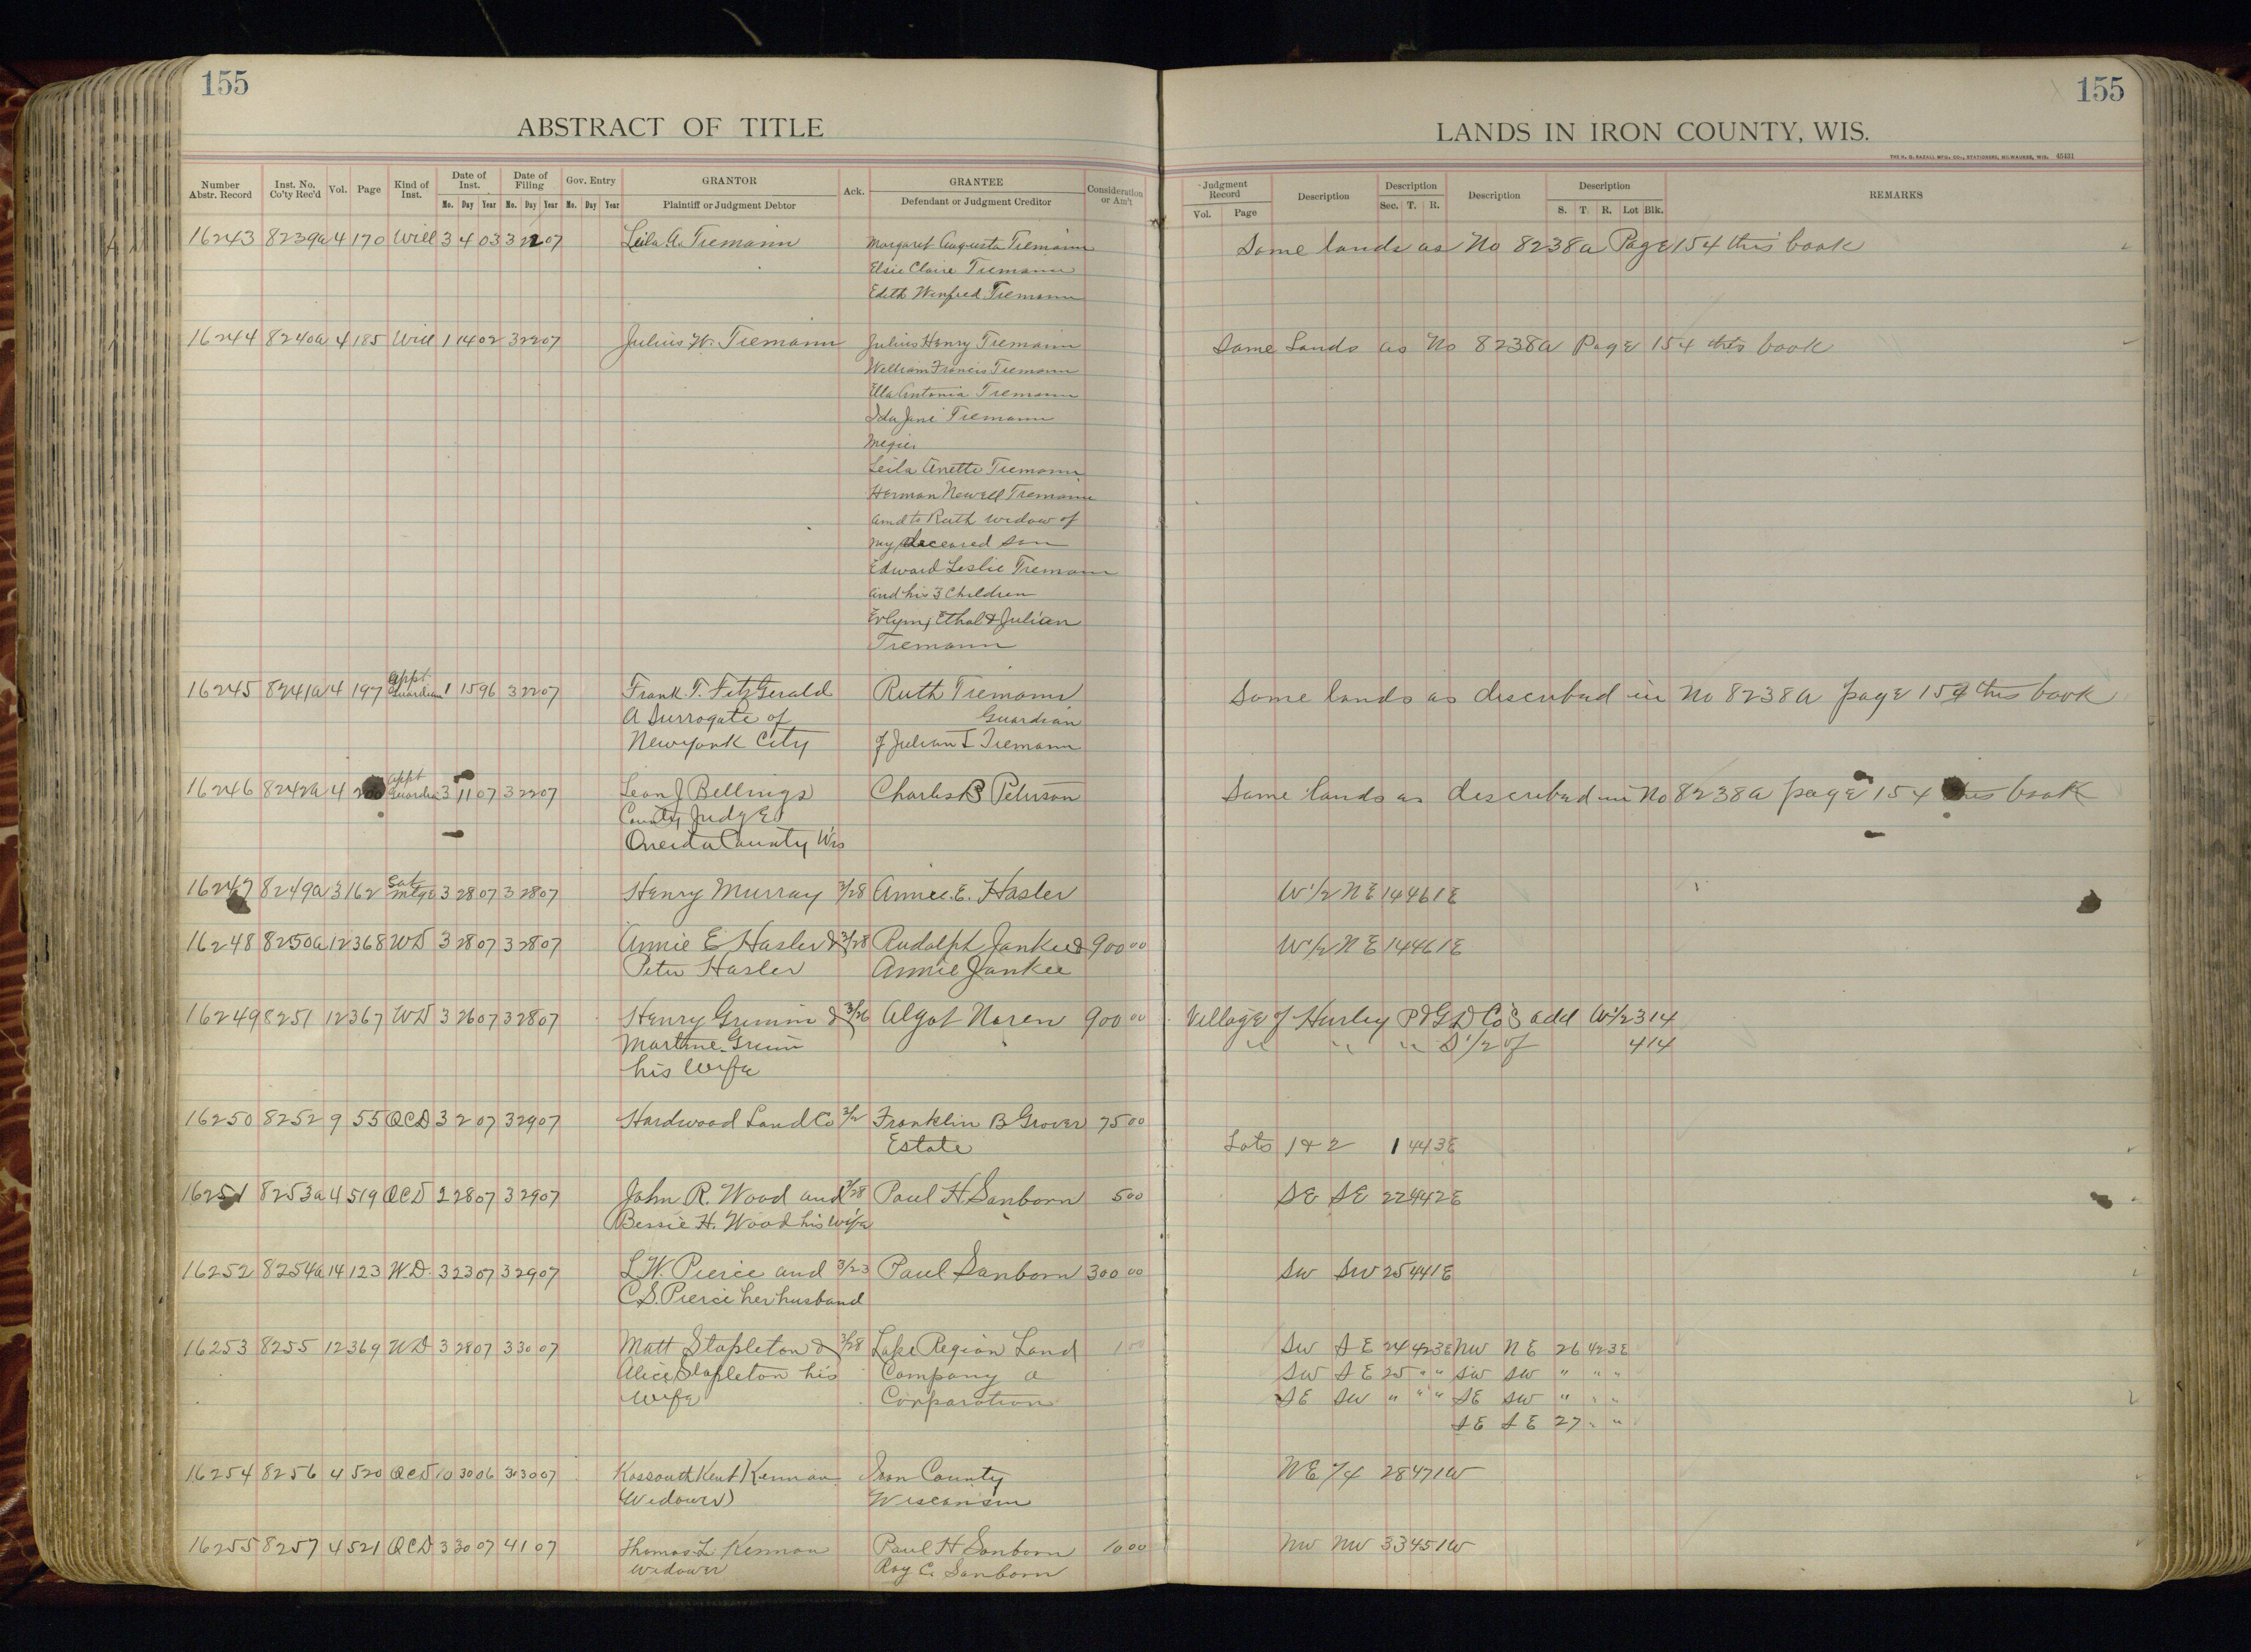 155
ABSTRACT OF TITLE
Number Abstr. Record
Inst. No. Co'ty Rec'd
Vol.
Page
Kind of Inst.
Date of Inst.
Mo. Day Year
Date of Filing
Mo. Day Year
Gov. Entry
Mo. Day Year
GRANTOR
Plaintiff or Judgment Debtor
Ack.
GRANTEE
Defendant or Judgment Creditor
Consideration or Am't
155
LANDS IN IRON COUNTY, WIS.
Judgment Record
Vol. Page
Description
Description
Sec. T. R.
Description
Description
S. T. R. Lot Blk.
REMARKS
16243 8239a 4 170 Will 3 4 03 3 22 07 Leila A. Tiemann Margaret Augusta Tiemann Same lands as No 8238a Page 154 this book
Elsie Claire Tiemann
Edith Winfred Tiemann
16244 8240a 4 185 Will 1 14 02 3 22 07 Julius W. Tiemann Julius Henry Tiemann Same Lands as No 8238a Page 154 this book
William Francis Tiemann
Ella Antonia Tiemann
Ida Jane Tiemann
Leila Anette Tiemann
Herman Newell Tiemann
and to Ruth widow of
my deceased son
Edward Leslie Tiemann
and his 3 Children
Evlyn, Ethal & Julian
Tiemann
16245 8241a 4 197 Appt. Guardian 1 15 96 3 22 07 Frank. T. FitzGerald Ruth Tiemann Same lands as described in No 8238a page 154 this book
A Surrogate of Guardian
New York City of Julian T Tiemann
16246 8242a 4 200 Appt Guardian 3 11 07 3 22 07 Leon J Bellings Charles B Peterson Same lands as described in No 8238a page 154 this book
County Judge
Oneida County Wis
16247 8249a 3 162 Sat mtge 3 28 07 3 28 07 Henry Murray 3/28 Annie. E. Hasler W 1/2 N E 14 46 1E
16248 8250a 12 368 WD 3 28 07 3 28 07 Annie E Hasler & 3/28 Rudolph Jankee & 900 00 W 1/2 N E 14 46 1E
Peter Hasler Annie Jankee
16249 8251 12 367 WD 3 26 07 3 28 07 Henry Grimm & 3/26 Algot Noren 900 00 Village of Hurley P & G D Co's add W 1/2 3 14
Martine Grimm " " " S 1/2 of 4 14
his Wife
16250 8252 9 55 QCD 3 2 07 3 29 07 Hardwood Land Co 3/2 Franklin B Grover 75 00
Estate Lots 1 & 2 1 44 3E
16251 8253a 4 519 QCD 2 28 07 3 29 07 John R. Wood and 2/28 Paul H Sanborn 5 00 SE SE 22 44 2E
Bessie H. Wood his wife
16252 8254a 14 123 W.D. 3 23 07 3 29 07 L W. Pierce and 3/23 Paul Sanborn 300 00 SW SW 25 44 1E
C.S. Pierce her husband
16253 8255 12 369 WD 3 28 07 3 30 07 Matt Stapleton & 3/28 Lake Region Land 1 00 SW SE 24 42 3E NW NE 26 42 3E
Alice Stapleton his Company a SW SE 25 " " SW SW " " "
wife Corporation SE SW " " " SE SW " " "
SE SE 27 " "
16254 8256 4 520 QCD 10 30 06 3 30 07 Kossouth Kent Kennan Iron County NE 1/4 28 47 1W
(Widower) Wisconsin
16255 8257 4 521 QCD 3 30 07 4 1 07 Thomas L Kennan Paul H Sanborn 10 00 NW NW 33 45 1W
widower Roy C. Sanborn